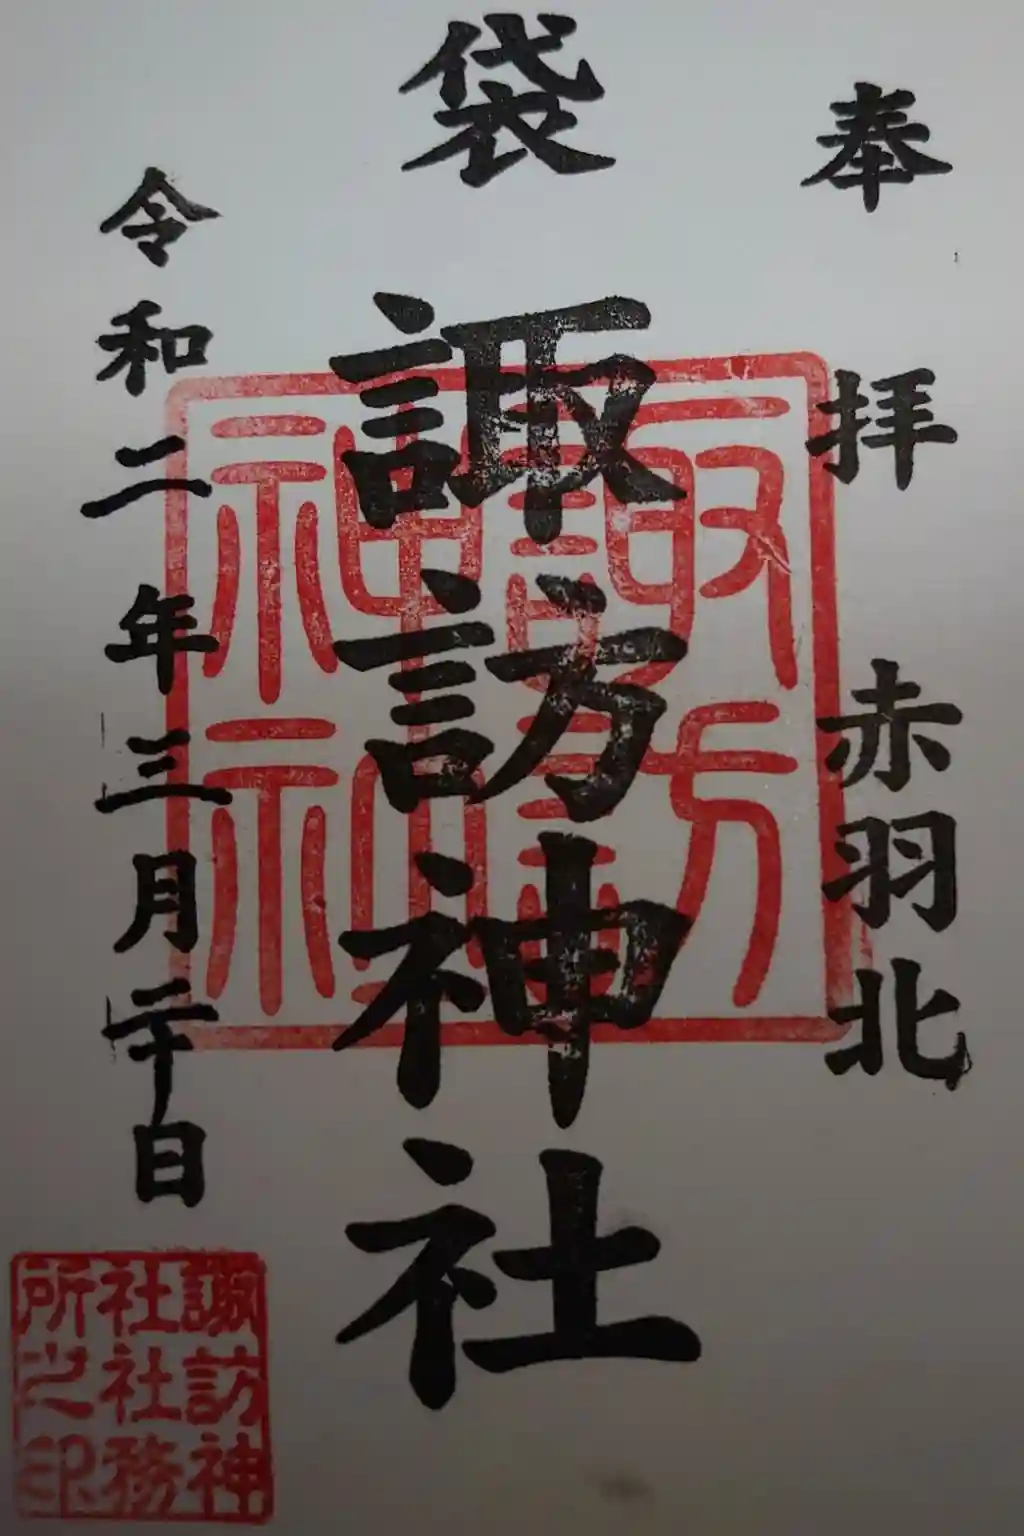 奉拝 赤羽北
袋 諏訪神社
令和二年三月二十日
諏訪
神社
諏訪神
社社務
所之印